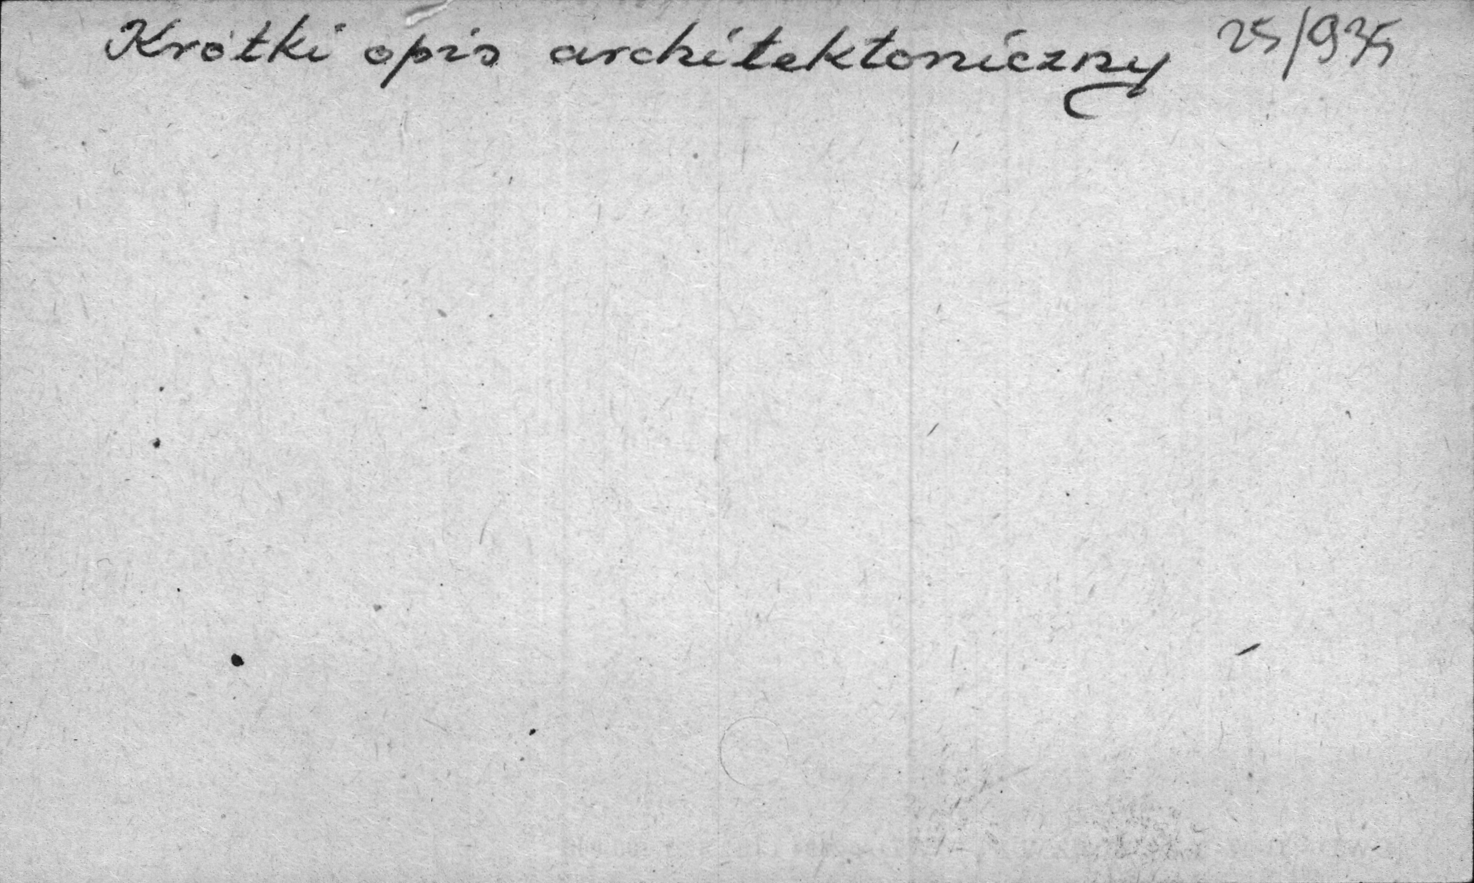 Krótki opis architektoniczny 25/935